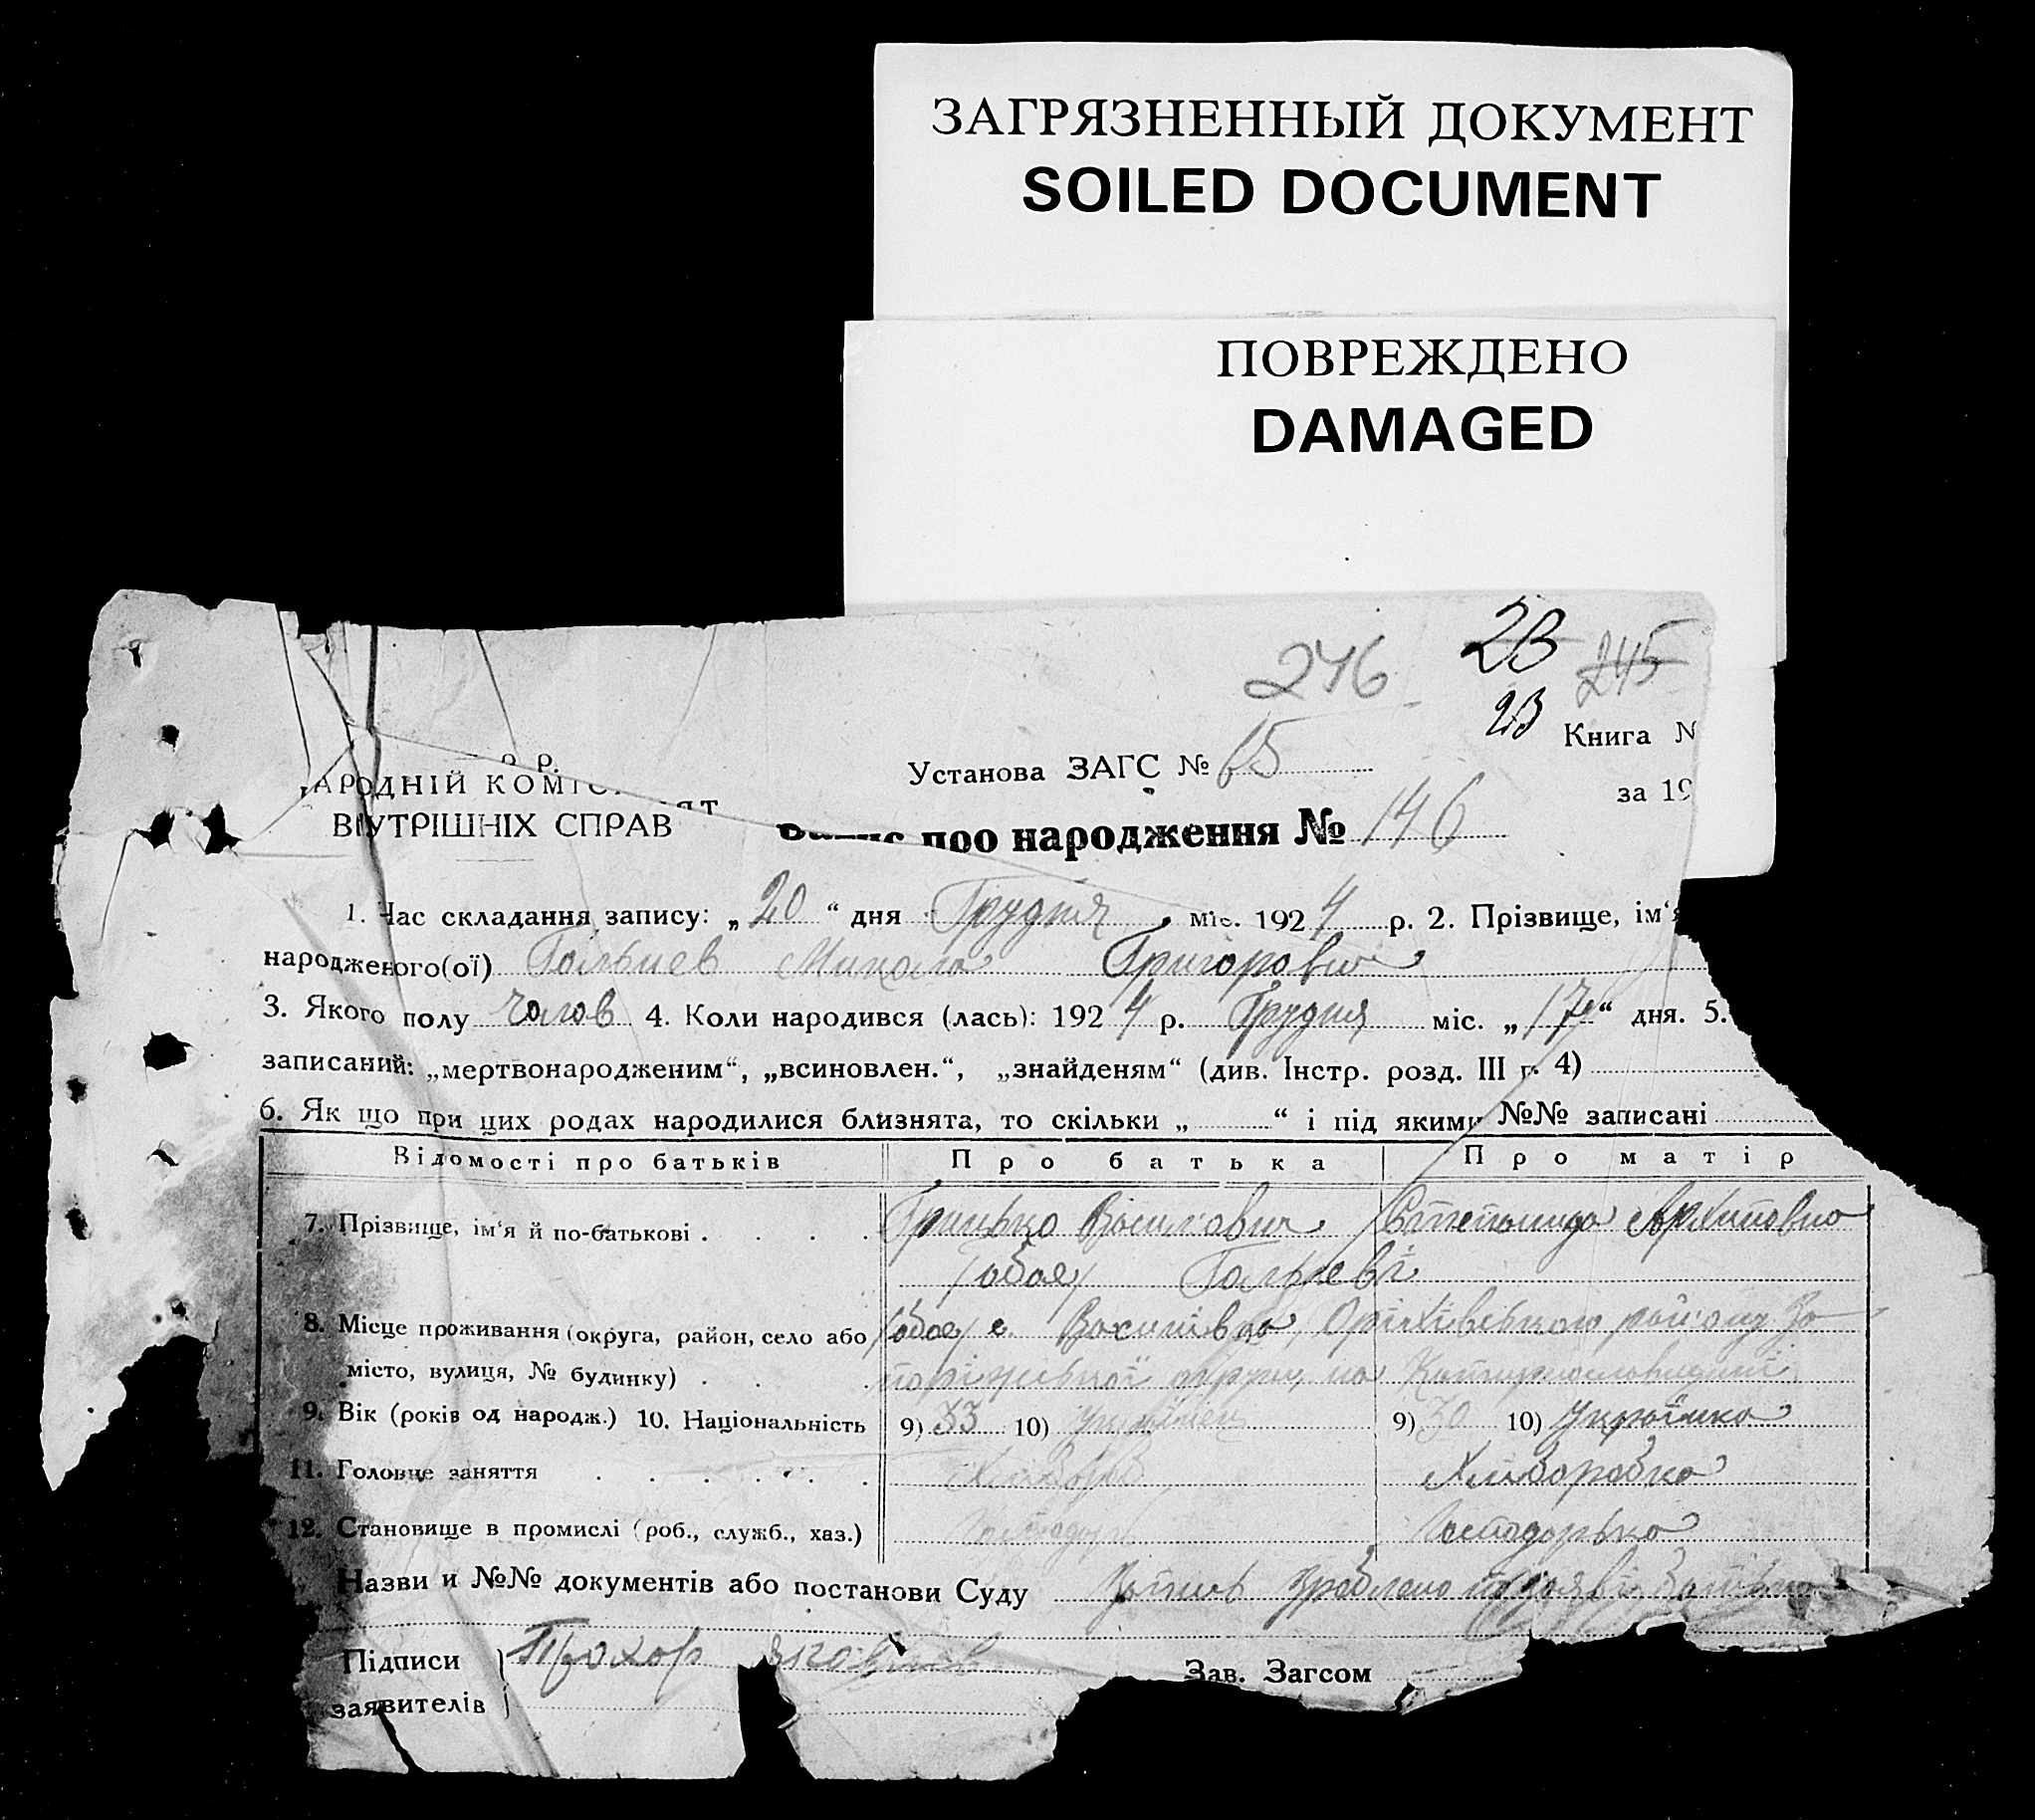 ЗАГРЯЗНЕННЫЙ ДОКУМЕНТ
SOILED DOCUMENT
ПОВРЕЖДЕНО
DAMAGED
246 23 245
23
Книга №
о. р.
АРОДНІЙ КОМІС
ВНУТРІШНІХ СПРАВ
Установа ЗАГС № 65
за 19
Запис про народження № 146
1. Час складання запису: „20“ дня Грудня міс. 1924 р. 2. Прізвище, ім'я
народженого(ої) Микола Григорович
3. Якого полу чолов 4. Коли народився (лась): 1924 р. Грудня міс. „17“ дня. 5.
записаний: „мертвонародженим“, „всиновлен.“, „знайденям“ (див. Інстр. розд. III г. 4)
6. Як що при цих родах народилися близнята, то скільки „ “ і під якими №№ записані
Відомості про батьків Про батька Про матір
7. Прізвище, ім'я й по-батькові Грицько Василович Степанида Архиповна
/обоє/
8. Місце проживання (округа, район, село або /обоє/ с. Оріхівського району За
місто, вулиця, № будинку) порізької округи, на Катеринославщині
9. Вік (років од народж.) 10. Національність 9) 33 10) Українец 9) 30 10) Українка
11. Головне заняття Хлібороб Хлиборобка
12. Становище в промислі (роб., служб., хаз.) Господар Господарька
Назви и №№ документів або постанови Суду Запись зроблено по заяві
Підписи Прохор
заявителів
Зав. Загсом